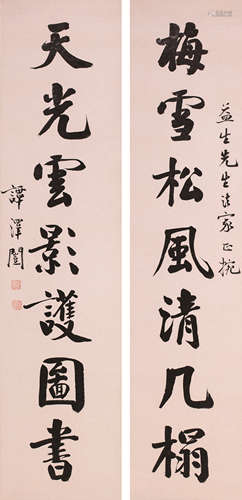 益生先生法家正腕
梅雪松風清几榻
天光雲影護圖書
譚澤闓